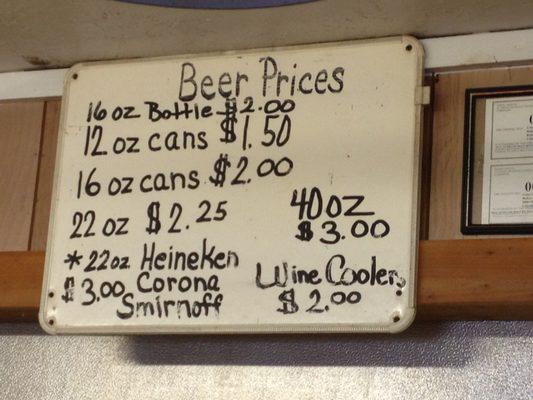 Beer Prices
16 oz Bottle $2.00
12 oz cans $1.50
16 oz cans $2.00
22 oz $2.25
40 oz
$3.00
*22oz Heineken
$3.00 Corona
Smirnoff
Wine Coolers
$2.00